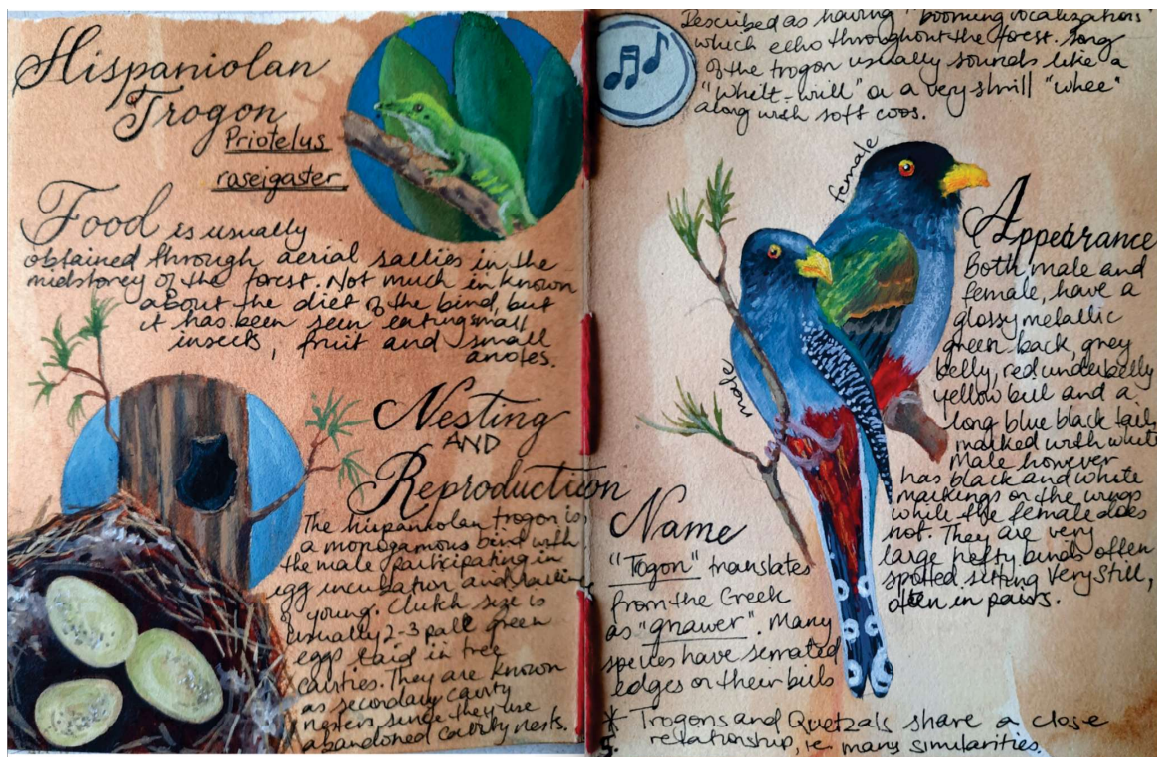 Hispaniolan
Trogon
Priotelus
roseigaster
Food is usually
obtained through aerial sallies in the
midstorey of the forest. Not much in known
about the diet of the bird, but
it has been seen eating small
insects, fruit and small
anoles.
Nesting
AND
Reproduction
The hispaniolan trogon is
a monogamous bird with
the male participating in
egg incubation and
of young. Clutch size is
usually 2-3 pale green
eggs laid in tree
cavities. They are known
as secondary cavity
nesters since they use
abandoned cavity nests.
Described as having "booming vocalizations"
which echo throughout the forest. Song
of the trogon usually sounds like a
or a very shrill "whee"
along with soft coos.
female
male
Appearance
Both male and
female, have a
glossy metallic
green back, grey
belly, red underbelly
yellow bill and a
long blue black tail
marked with white
Male however
has black and white
markings on the wings
while the female does
not. They are very
large hefty birds often
spotted sitting very still,
often in pairs.
Name
"Togon" translates
from the Greek
as "gnawer". Many
species have serrated
edges on their bills
* Trogons and Quetzals share a close
relationship, ie many similarities.
5.